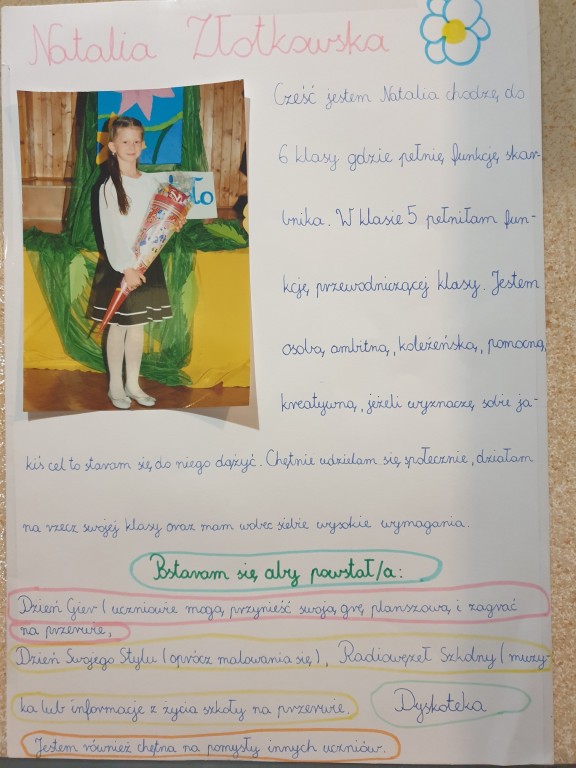 Natalia Złotkowska
Cześć jestem Natalia chodzę do
6 klasy gdzie pełnię funkcję skar-
bnika. W klasie 5 pełniłam fun-
kcję przewodniczącej klasy. Jestem
osobą ambitną, koleżeńską, pomocną,
kreatywną, jeżeli wyznaczę sobie ja-
kiś cel to staram się do niego dążyć. Chętnie udzielam się społecznie, działam
na rzecz swojej klasy oraz mam wobec siebie wysokie wymagania.
Postaram się aby powstał/a:
Dzień Gier (uczniowie mogą przynieść swoją grę planszową i zagrać
na przerwie,
Dzień Swojego Stylu (oprócz malowania się), Radiowęzeł Szkolny (muzy-
ka lub informacje z życia szkoły na przerwie. Dyskoteka
Jestem również chętna na pomysły innych uczniów.